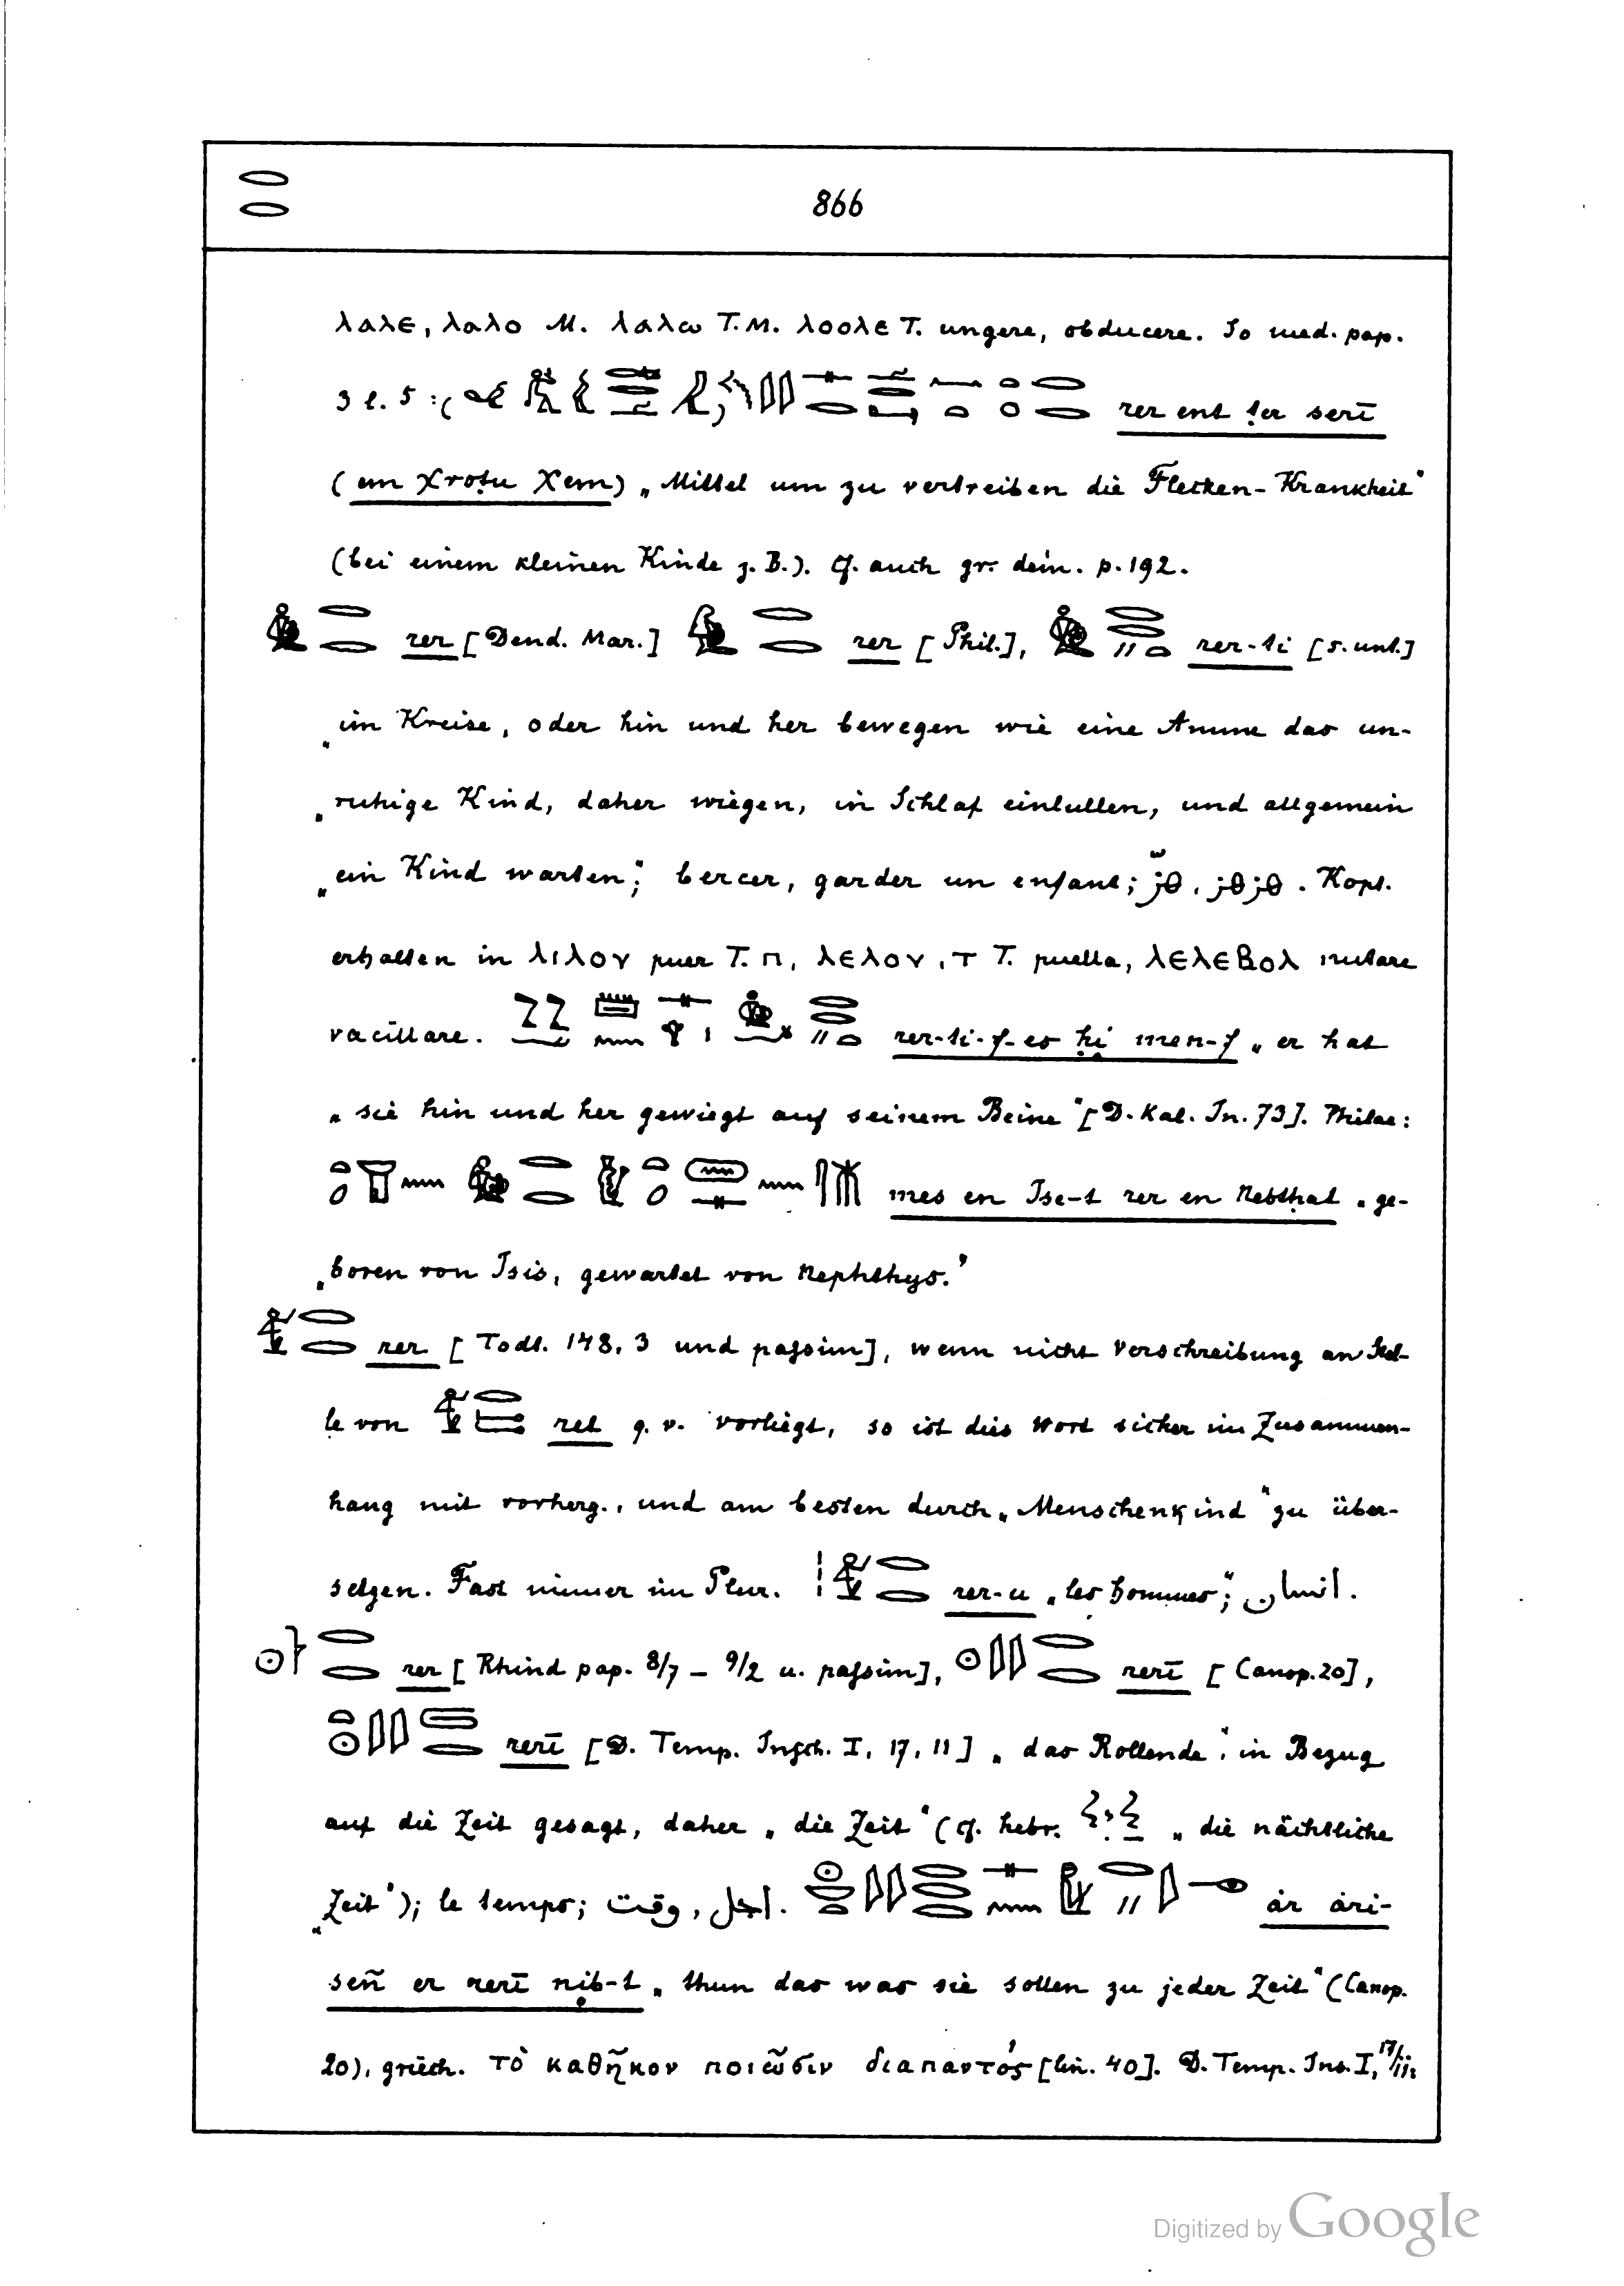 866
ⲗⲁⲗⲉ, ⲗⲁⲗⲟ M. ⲗⲁⲗⲱ T.M. ⲗⲟⲟⲗⲉ T. ungere, obducere. So med. pap.
3 l. 5 : rer ent ṭer serī
(em χroṭu χem) „Mittel um zu vertreiben die Flecken-Krankheit“
(bei einem kleinen Kinde z. B.). cf. auch gr. dém. p. 192.
rer [Dend. Mar.] rer [Phil.], rer-ti [s. unt.]
„im Kreise, oder hin und her bewegen wie eine Amme das un-
„ruhige Kind, daher wiegen, in Schlaf einlullen, und allgemein
„ein Kind warten“; bercer, garder un enfant; Kopt.
erhalten in ⲗⲓⲗⲟⲩ puer T. ⲡ, ⲗⲉⲗⲟⲩ, ⲧ T. puella, ⲗⲉⲗⲉⲃⲟⲗ nutare
vacillare. rer-ti-f-es ḥi men-f „er hat
„sie hin und her gewiegt auf seinem Beine“ [D. Kal. In. 73]. Philae:
mes en Ise-t rer en Nebṭhat „ge-
„boren von Isis, gewartet von Nephthys.“
rer [Todt. 148, 3 und passim], wenn nicht Verschreibung an Stel-
le von ret q. v. vorliegt, so ist dies Wort sicher im Zusammen-
hang mit vorherg., und am besten durch „Menschenkind“ zu über-
setzen. Fast immer im Plur. rer-u „les hommes“; انسان.
rer [Rhind pap. 8/7 – 9/2 u. passim], rerī [Canop. 20],
rerī [D. Temp. Insch. I, 17, 11] „das Rollende“, in Bezug
auf die Zeit gesagt, daher „die Zeit“ (cf. hebr. „die nächtliche
„Zeit“); le temps; اجل, وقت. ȧr ȧri-
sen̄ er rerī nib-t „thun das was sie sollen zu jeder Zeit“ (Canop.
20), griech. τὸ καθῆκον ποιῶσιν διαπαντός [lin. 40]. D. Temp. Ins. I, 17/11:
Digitized by Google